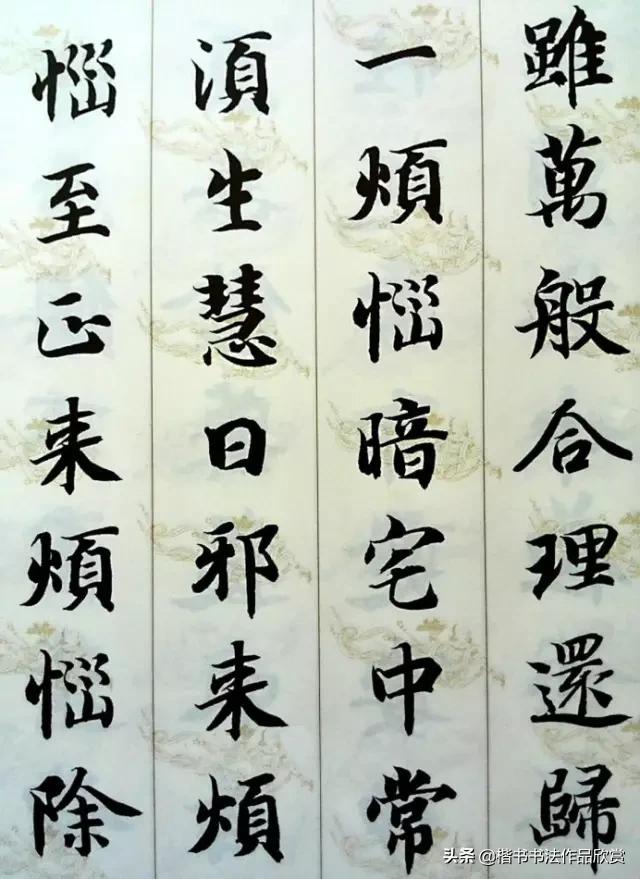 雖萬般合理還歸
一煩惱暗宅中常
須生慧日邪来煩
惱至正来煩惱除
头条 @楷书书法作品欣赏